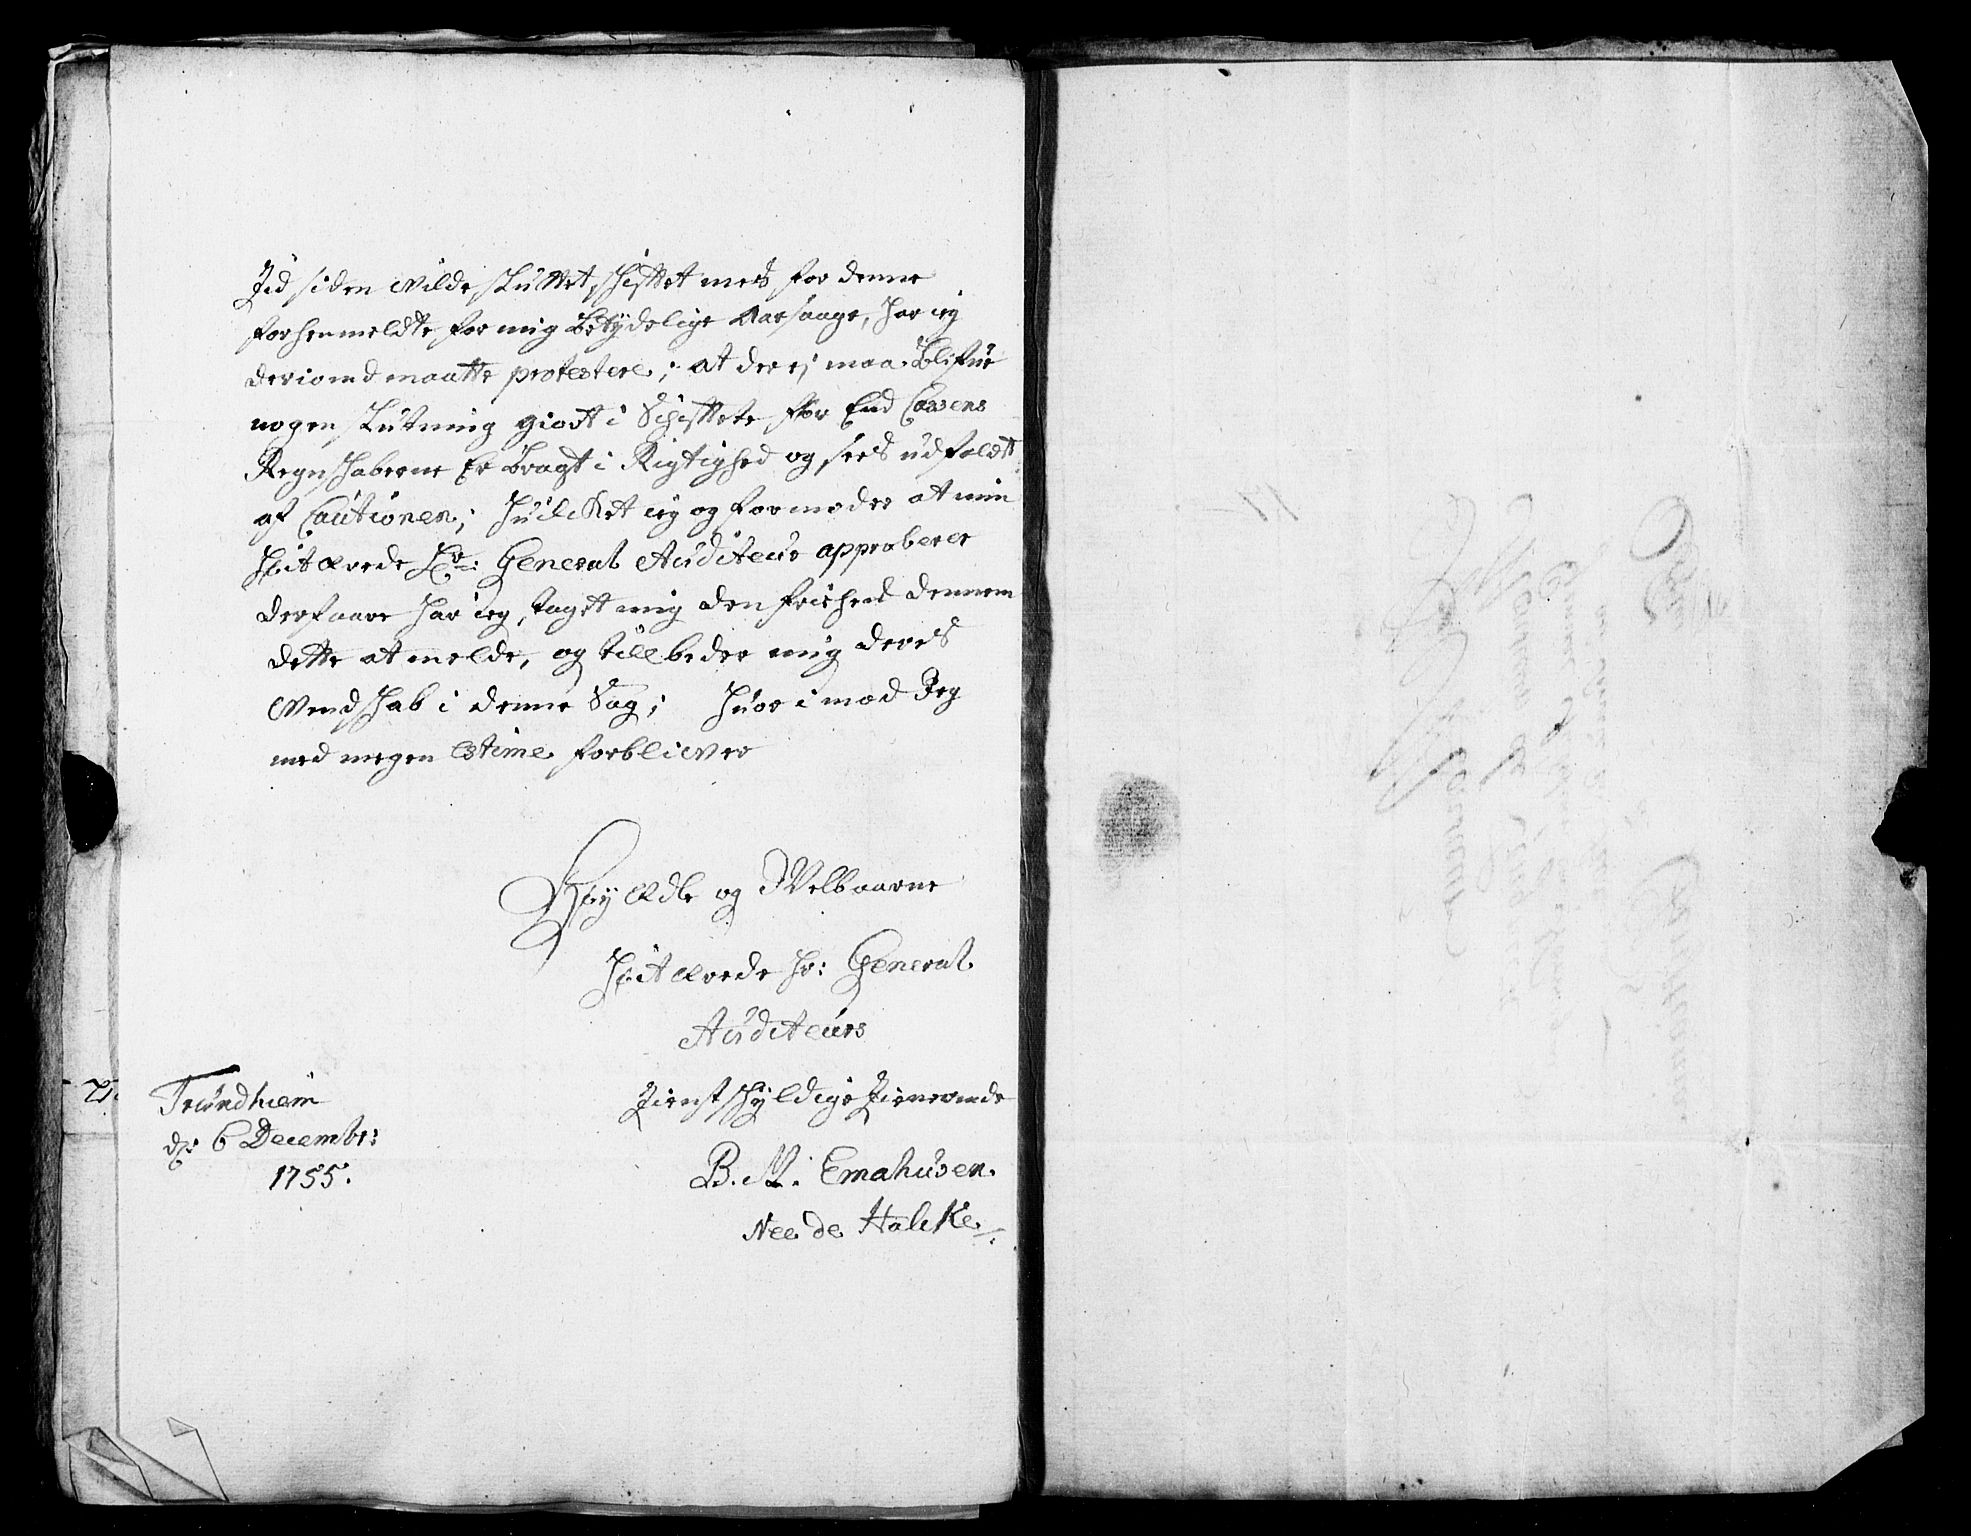 Tid siden vilde sluttet schifftet med for denne
forhenmeldte for mig betydelige Aarsaage, har ieg
deriomd maatte protestere; at der ej maa blifue
nogen slutning giort i Schifftete før End Cassens
Regnskaberne Er bragt i Rigtighed og sees udfaldt
af Cautionen; huilcket ieg og formoder at min
høitærede Hr: General Auditeur approberer
derfaare har ieg taget mig den friehed dennem
dette at melde, og tillbeder mig deres
Vendskab i denne Sag; huor imod Jeg
med megen Estime forbliever
Høyædle og Velbaarne
høitærede hr: General
Auditeurs
Tienstskyldige Tienerinde
B. M. Emahusen.
Nee de Halcke
Trundhiem
d: 6 Decembr:
1755.